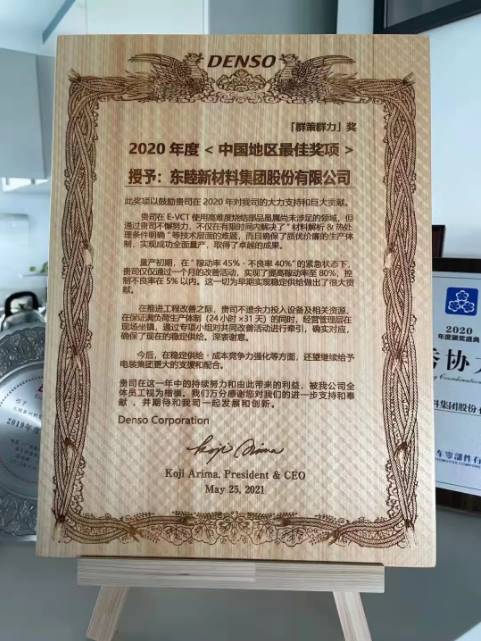 DENSO
「群策群力」奖
2020 年度 < 中国地区最佳奖项 >
授予：东睦新材料集团股份有限公司
此奖项以鼓励贵司在 2020 年对我司的大力支持和巨大贡献。
贵司在 E-VCT 使用高难度烧结部品是属尚未涉足的领域，但
通过贵司不懈努力，不仅在有限时间内解决了“材料解析＆热处
理条件明确”等技术层面的难题，而且确保了质优价廉的生产体
制，实现成功全面量产，取得了卓越的成果。
量产初期，在“稼动率 45%・不良率 40%”的紧急状态下，
贵司仅仅通过一个月的改善活动，实现了提高稼动率至 80%，控
制不良率在 5% 以内。这一切为早期实现稳定供给做出了很大贡
献。
在推进工程改善之际，贵司不遗余力投入设备及相关资源，
在保证满负荷生产体制（24 小时 ×31 天）的同时，经营管理层在
现场坐镇，通过专项小组对共同改善活动进行牵引，确实对应，
确保了现在的稳定供给。深表谢意。
今后，在稳定供给・成本竞争力强化等方面，还望继续给予
电装集团更大的支援和配合。
贵司在这一年中的持续努力和由此带来的利益，被我公司全
体员工视为楷模。我们万分感谢您对我们的进一步支持和奉
献，并期待和我司一起发展和创新。
Denso Corporation
Koji Arima
Koji Arima, President & CEO
May 25, 2021
2019年
2020
年度颁奖盛典
秀协
料集团股份
车零部件有